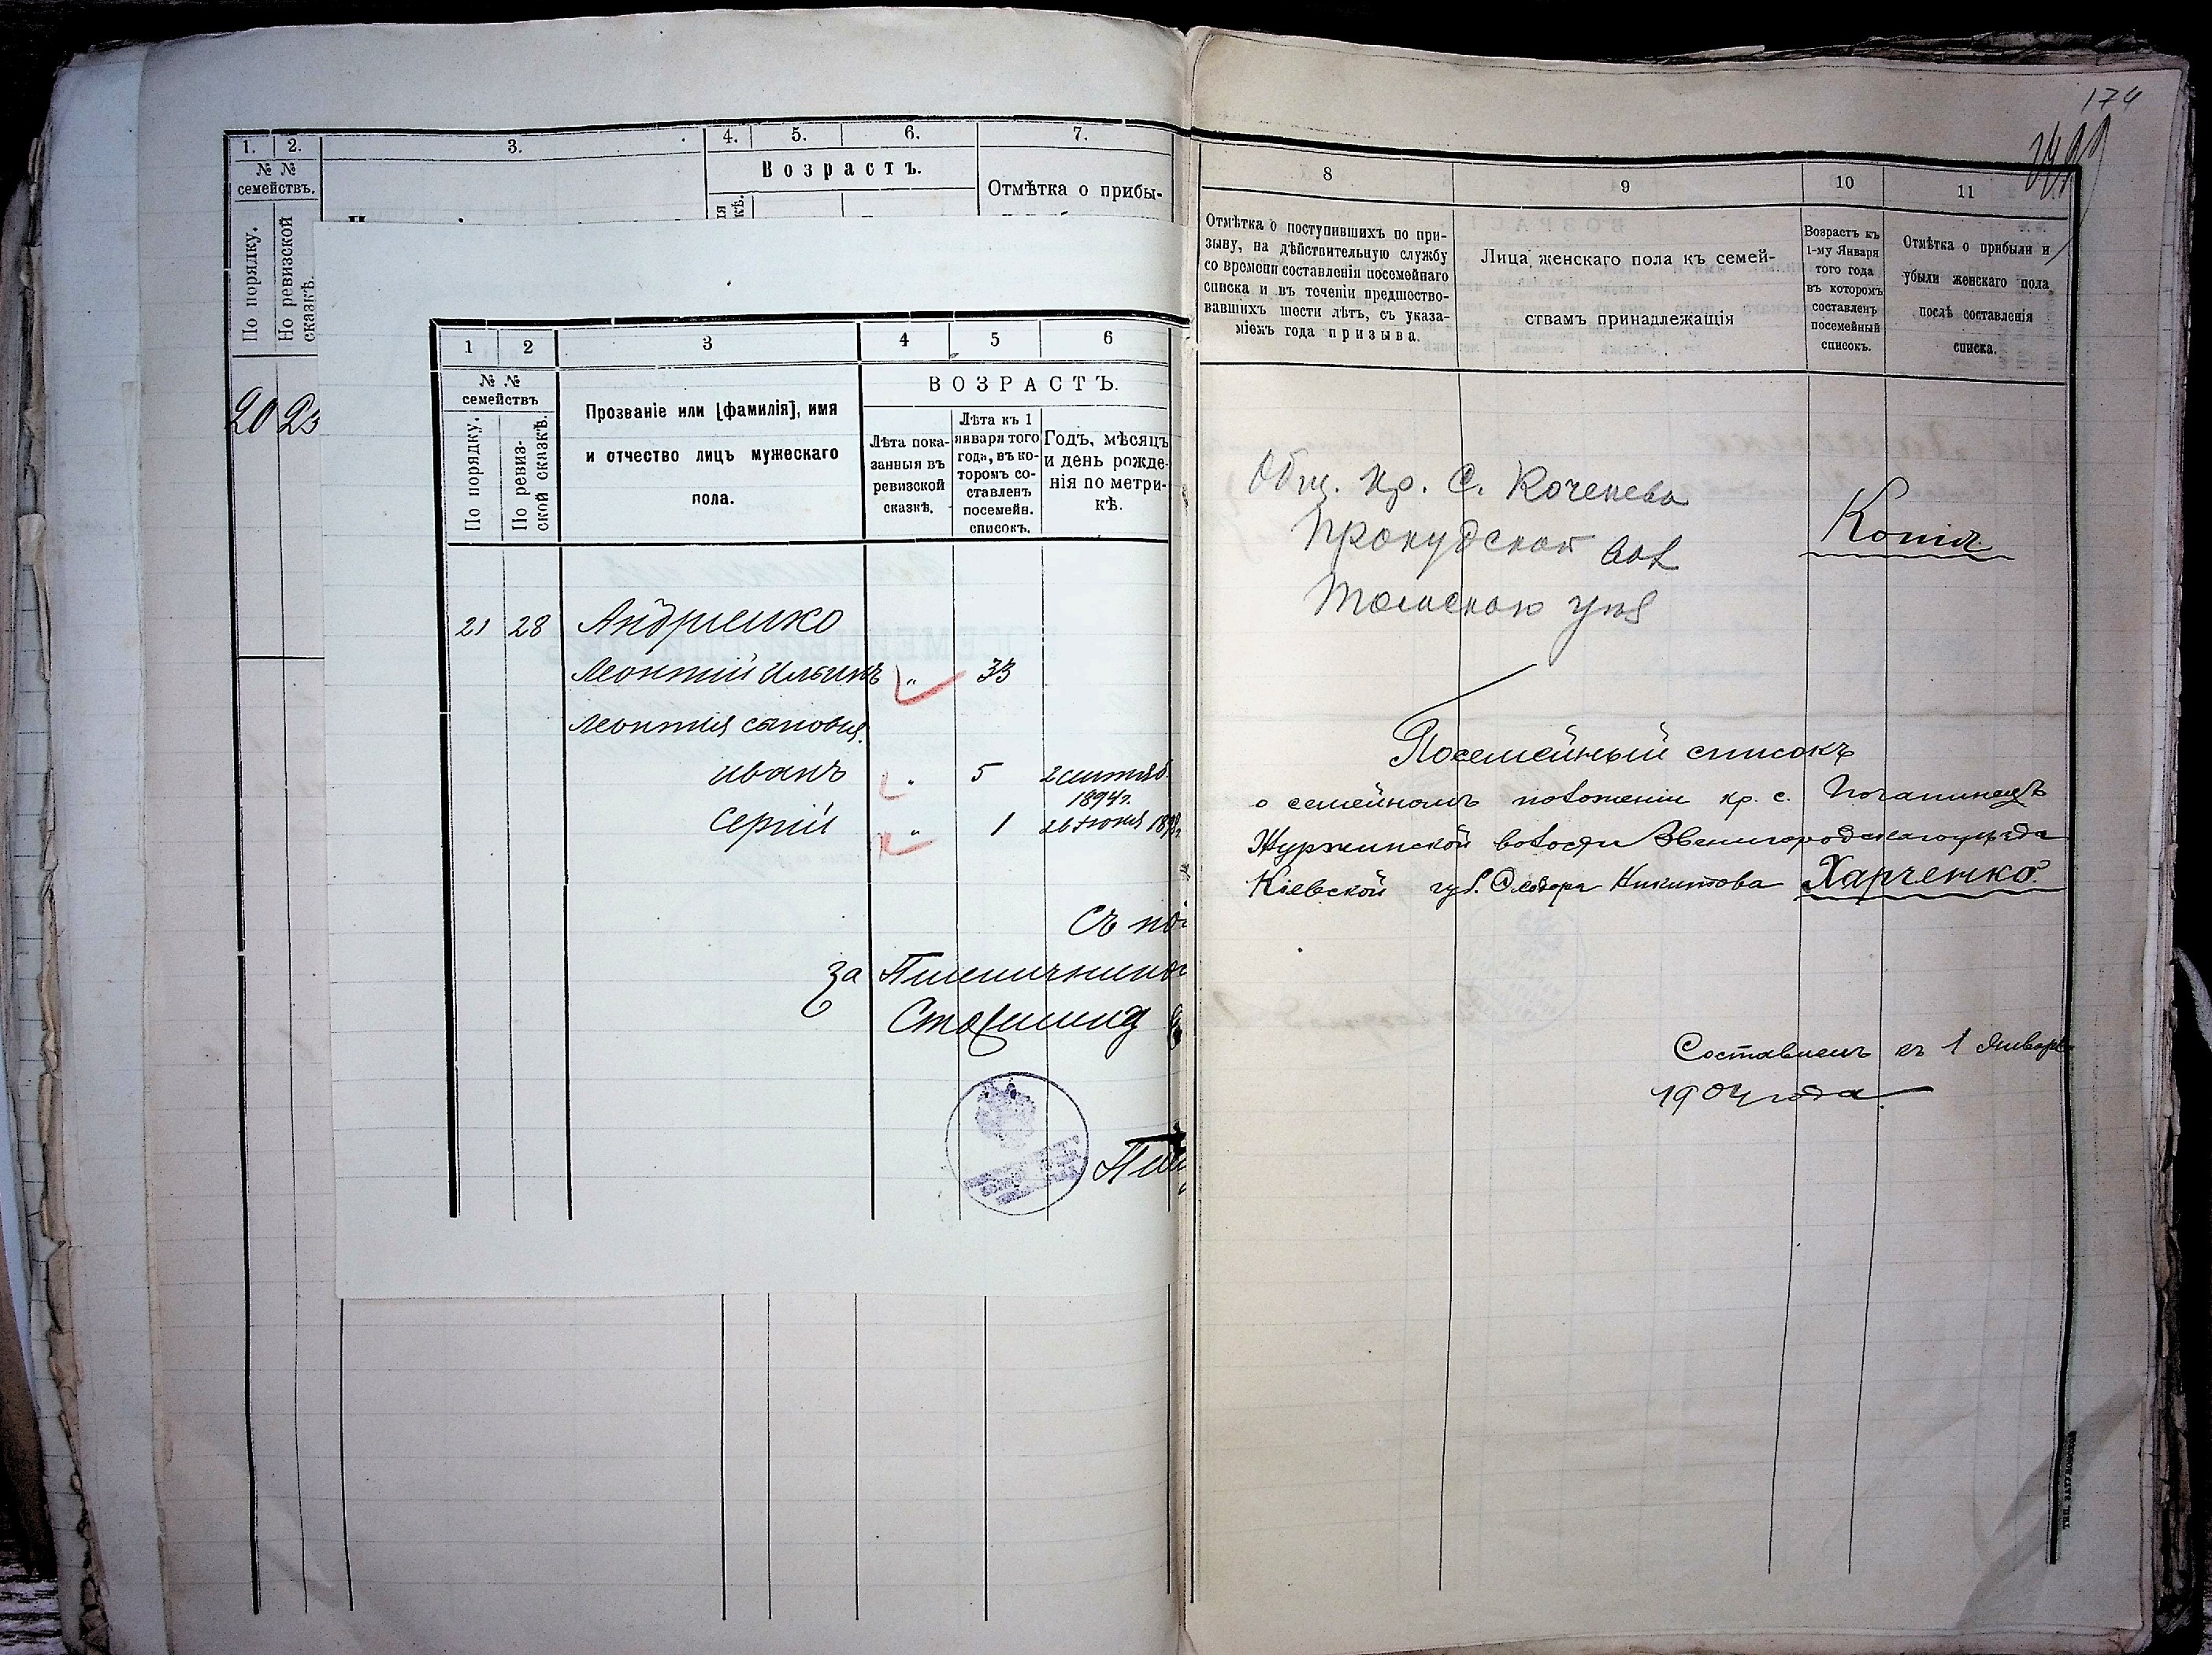 1. 2. 3. 4. 5. 6. 7.
№ №
семействъ.
Возрастъ.
Отмѣтка о прибы-
По порядку.
По ревизской
сказкѣ.
20 23
1 2 3 4 5 6
№ №
семействъ
По порядку.
По ревиз-
ской сказкѣ.
Прозваніе или [фамилія], имя
и отчество лицъ мужескаго
пола.
ВОЗРАСТЪ.
Лѣта пока-
занныя въ
ревизской
сказкѣ.
Лѣта къ 1
января того
года, въ ко-
торомъ со-
ставленъ
посемейн.
списокъ.
Годъ, мѣсяцъ
и день рожде-
нія по метри-
кѣ.
21 28 Андріенко
Леонтій Ильинъ „ 33
Леонтія сыновья.
Иванъ „ 5 2 сентяб.
1894 г.
Сергій „ 1 26 Іюня
Съ по
за
174
8 9 10 11
Отмѣтка о поступившихъ по при-
зыву, на дѣйствительную службу
со времени составленія посемейнаго
списка и въ теченіи предшество-
вавшихъ шести лѣтъ, съ указа-
ніемъ года призыва.
Лица женскаго пола къ семей-
ствамъ принадлежащія
Возрастъ къ
1-му Января
того года
въ которомъ
составленъ
посемейный
списокъ.
Отмѣтка о прибыли и
убыли женскаго пола
послѣ составленія
списка.
Общ. кр. С. Коченева
Прокудской вол
Томскаго уѣз
Копія.
Посемейный списокъ
о семейномъ положеніи кр. с. Почапинецъ
Журжинской волости Звенигородскаго уѣзда
Кіевской губ. Ѳеодора Никитова Харченко.
Составленъ къ 1 Января
1904 года.
ТИП. ЗАТУЛОВСКОЙ